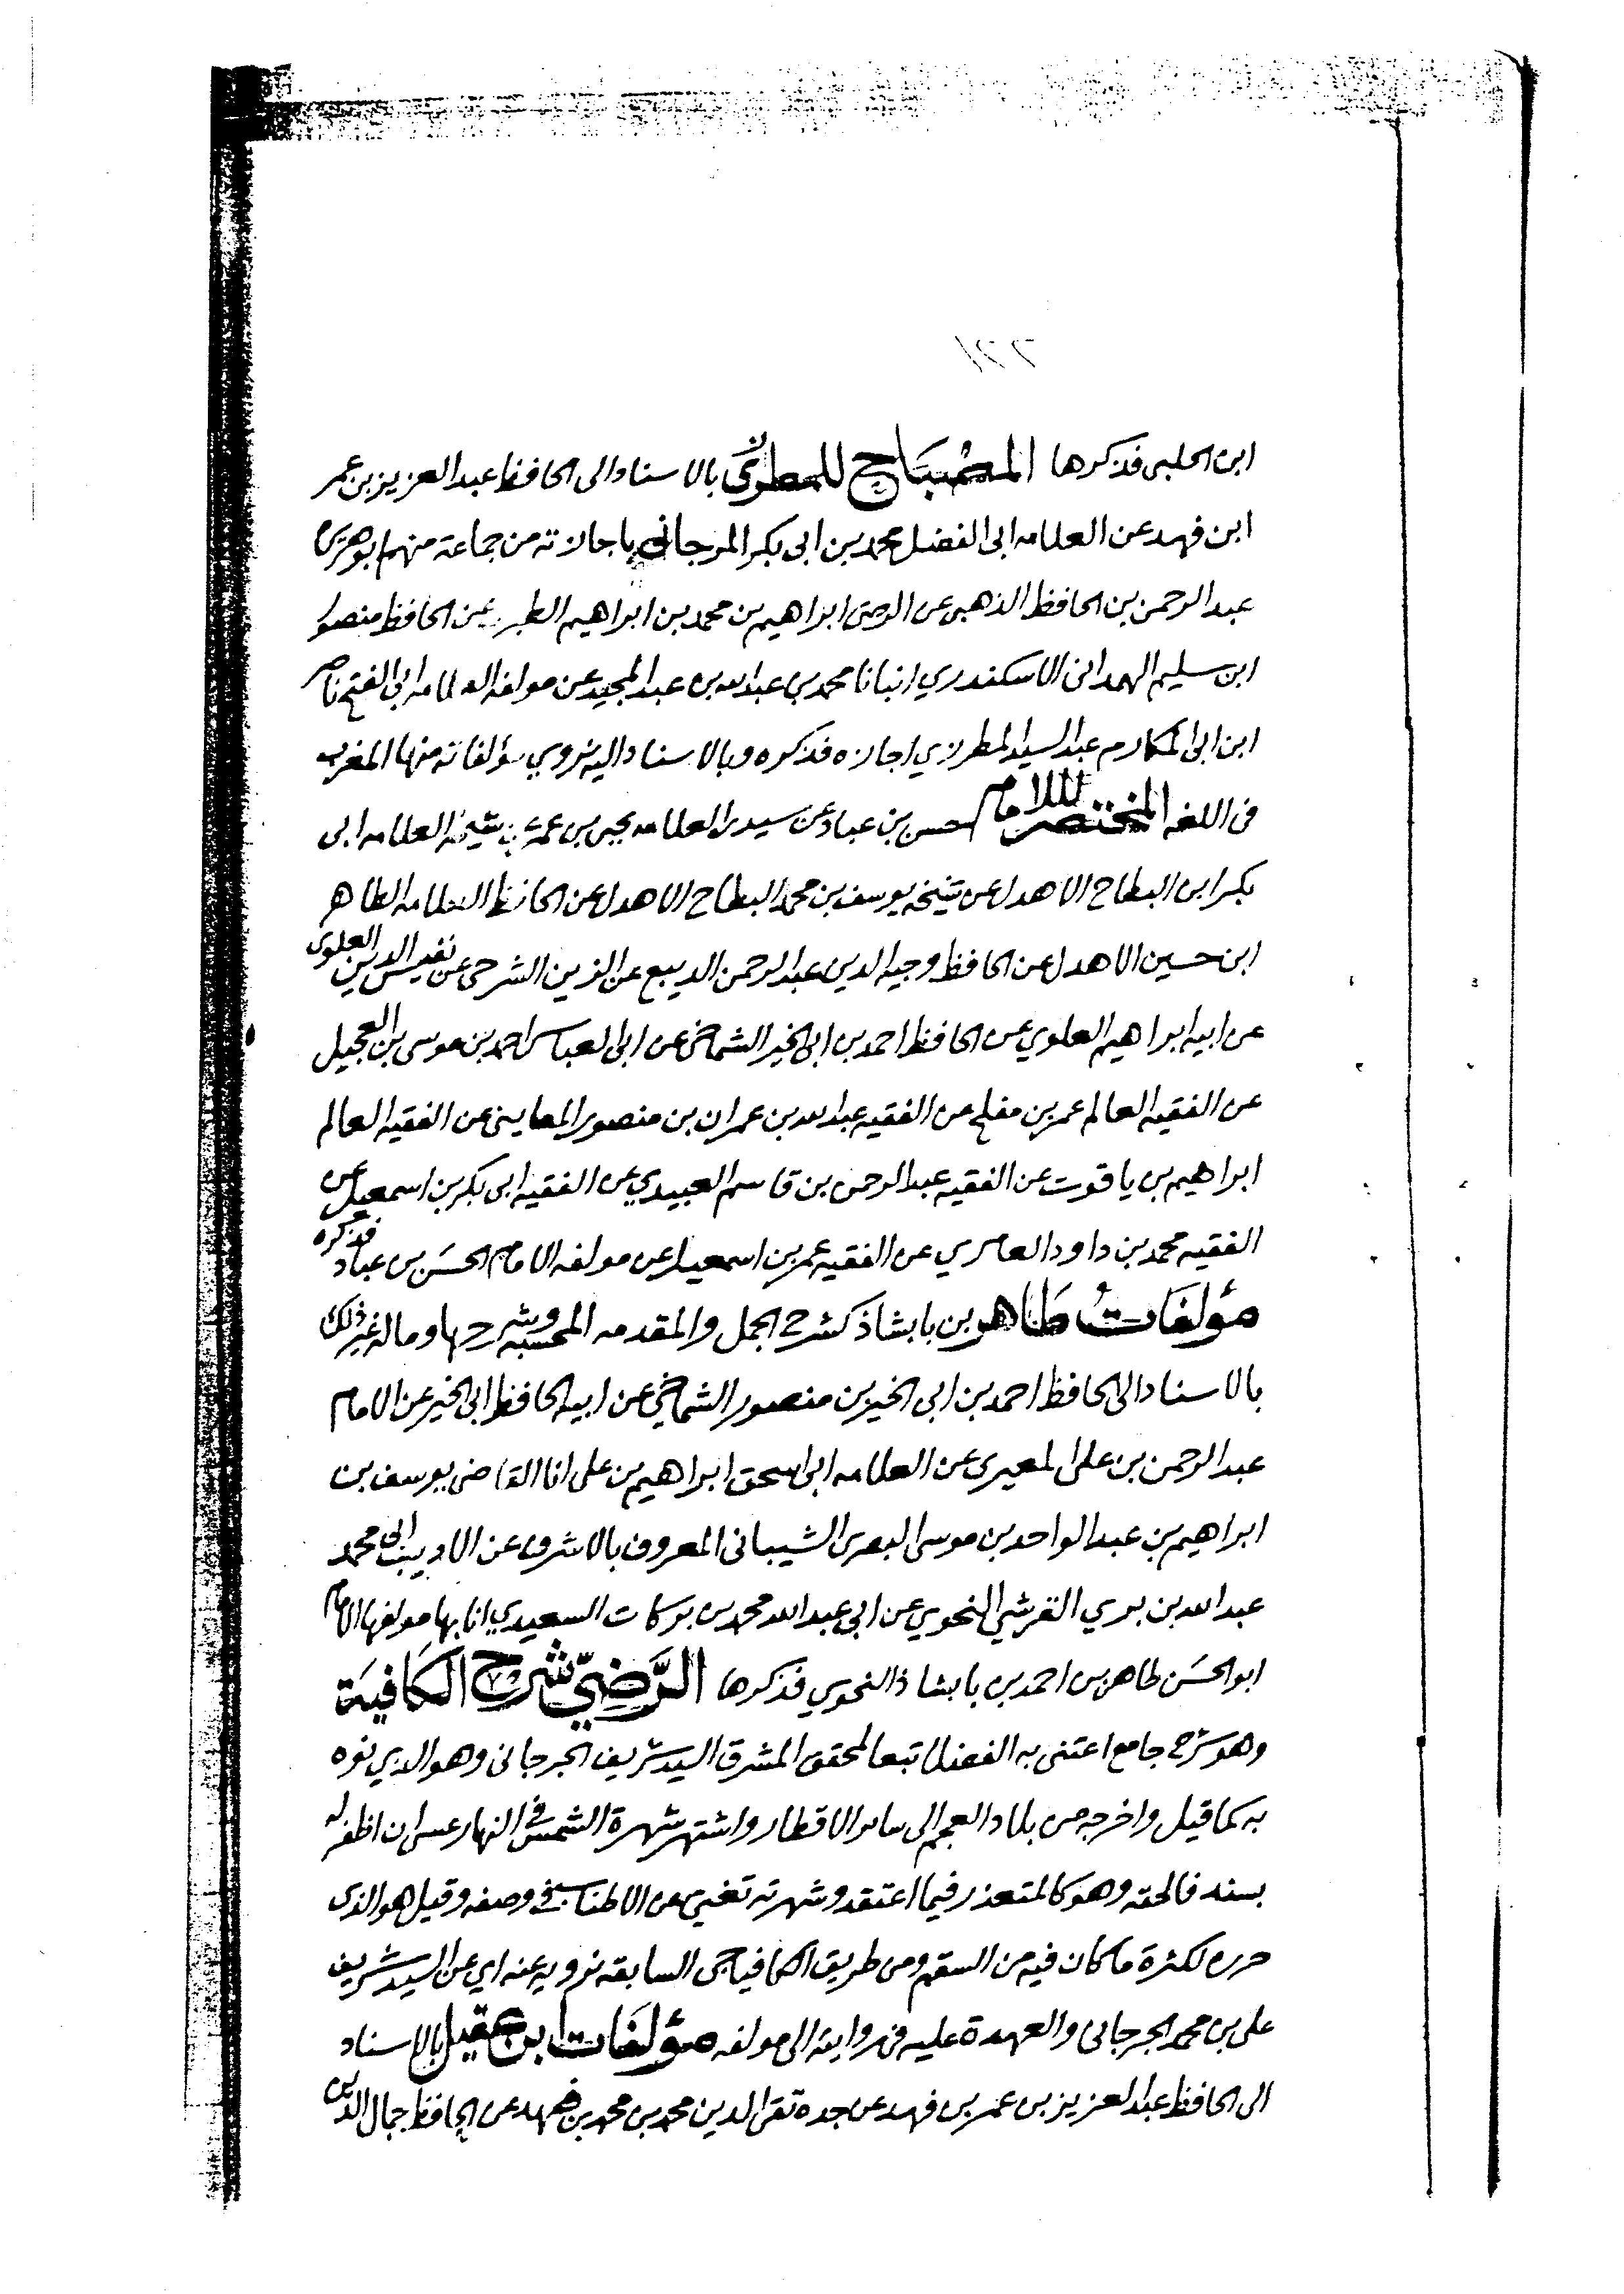 ١٢٢
ابن الحلبى فذكرها المصباح للمطرزى بالاسناد الى الحافظ عبد العزيز بن عمر
ابن فهد عن العلامه ابى الفضل محمد بن ابى بكر المرجانى باجازته من جماعة منهم ابو هريره
عبد الرحمن بن الحافظ الذهبى عن الرضى ابراهيم بن محمد بن ابراهيم الطبرى عن الحافظ منصور
ابن سليم الهمدانى الاسكندري انبانا محمد بن عبد الله بن عبد المجيد عن مولفه العلامه ابى الفتح ناصر
ابن ابى المكارم عبد السيد المطرزي اجازه فذكره وبالاسناد اليه نروي مؤلفاته منها المغرب
فى اللغه المختصر للامام حسن بن عباد عن سيدى العلامه يحيى بن عمر عن شيخه العلامه ابى
بكر ابن البطاح الاهدل عن شيخه يوسف بن محمد البطاح الاهدل عن الحافظ العلامه الطاهر
ابن حسين الاهدل عن الحافظ وجيه الدين عبد الرحمن الديبع عن الزين الشرجى عن نفيس الدين العلوى
عن ابيه ابراهيم العلوي عن الحافظ احمد بن ابى الخير الشماخى عن ابى العباس احمد بن موسى بن العجيل
عن الفقيه العالم عمر بن مفلح عن الفقيه عبد الله بن عمران بن منصور المعاينى عن الفقيه العالم
ابراهيم بن ياقوت عن الفقيه عبد الرحمن بن قاسم العبيدي عن الفقيه ابى بكر بن اسمعيل عن
الفقيه محمد بن داود العامري عن الفقيه عمر بن اسمعيل عن مولفه الامام الحسَن بن عباد فذكره
مؤلفاتُ طَاهر بن بابشاذ كشرح الجمل والمقدمه المحسبه وشرحها وماله غير ذلك
بالاسناد الى الحافظ احمد بن ابى الخير بن منصور الشماخي عن ابيه الحافظ ابى الخير عن الامام
عبد الرحمن بن على المعيرى عن العلامه ابى اسحق ابراهيم بن على انا القاضى يوسف بن
ابراهيم بن عبد الواحد بن موسى البصرى الشيبانى المعروف بالاشرف عن الاديب ابى محمد
عبد الله بن بري القرشي النحوي عن ابى عبد الله محمد بن بركات السعيدي انا بها مولفها الامام
ابو الحسَن طاهر بن احمد بن بابشاذ النحوي فذكرها الرَّضِيّ شرح الكَافيَة
وهو شرح جامع اعتنى به الفضلا تبعا لمحقق المشرق السيد شريف الجرجانى وهو الذي نوه
به كما قيل واخرجه من بلاد العجم الى ساير الاقطار واشتهر شهرة الشمس فى النهار عسى ان اظفر له
بسند فالحقه وهو كالمتعذر فيما اعتقد وشهرته تغني عن الاطناب فى وصفه وقيل هو الذى
حرره لكثرة ما كان فيه من السقم ومن طريق الكافياجى السابقه نرويه عنه اي عن السيد شريف
على بن محمد الجرجانى والعهدة عليه فى روايته الى مولفه مؤلفات ابن عقيل بالاسناد
الى الحافظ عبد العزيز بن عمر بن فهد عن جده تقى الدين محمد بن محمد بن فهد عن الحافظ جمال الدين